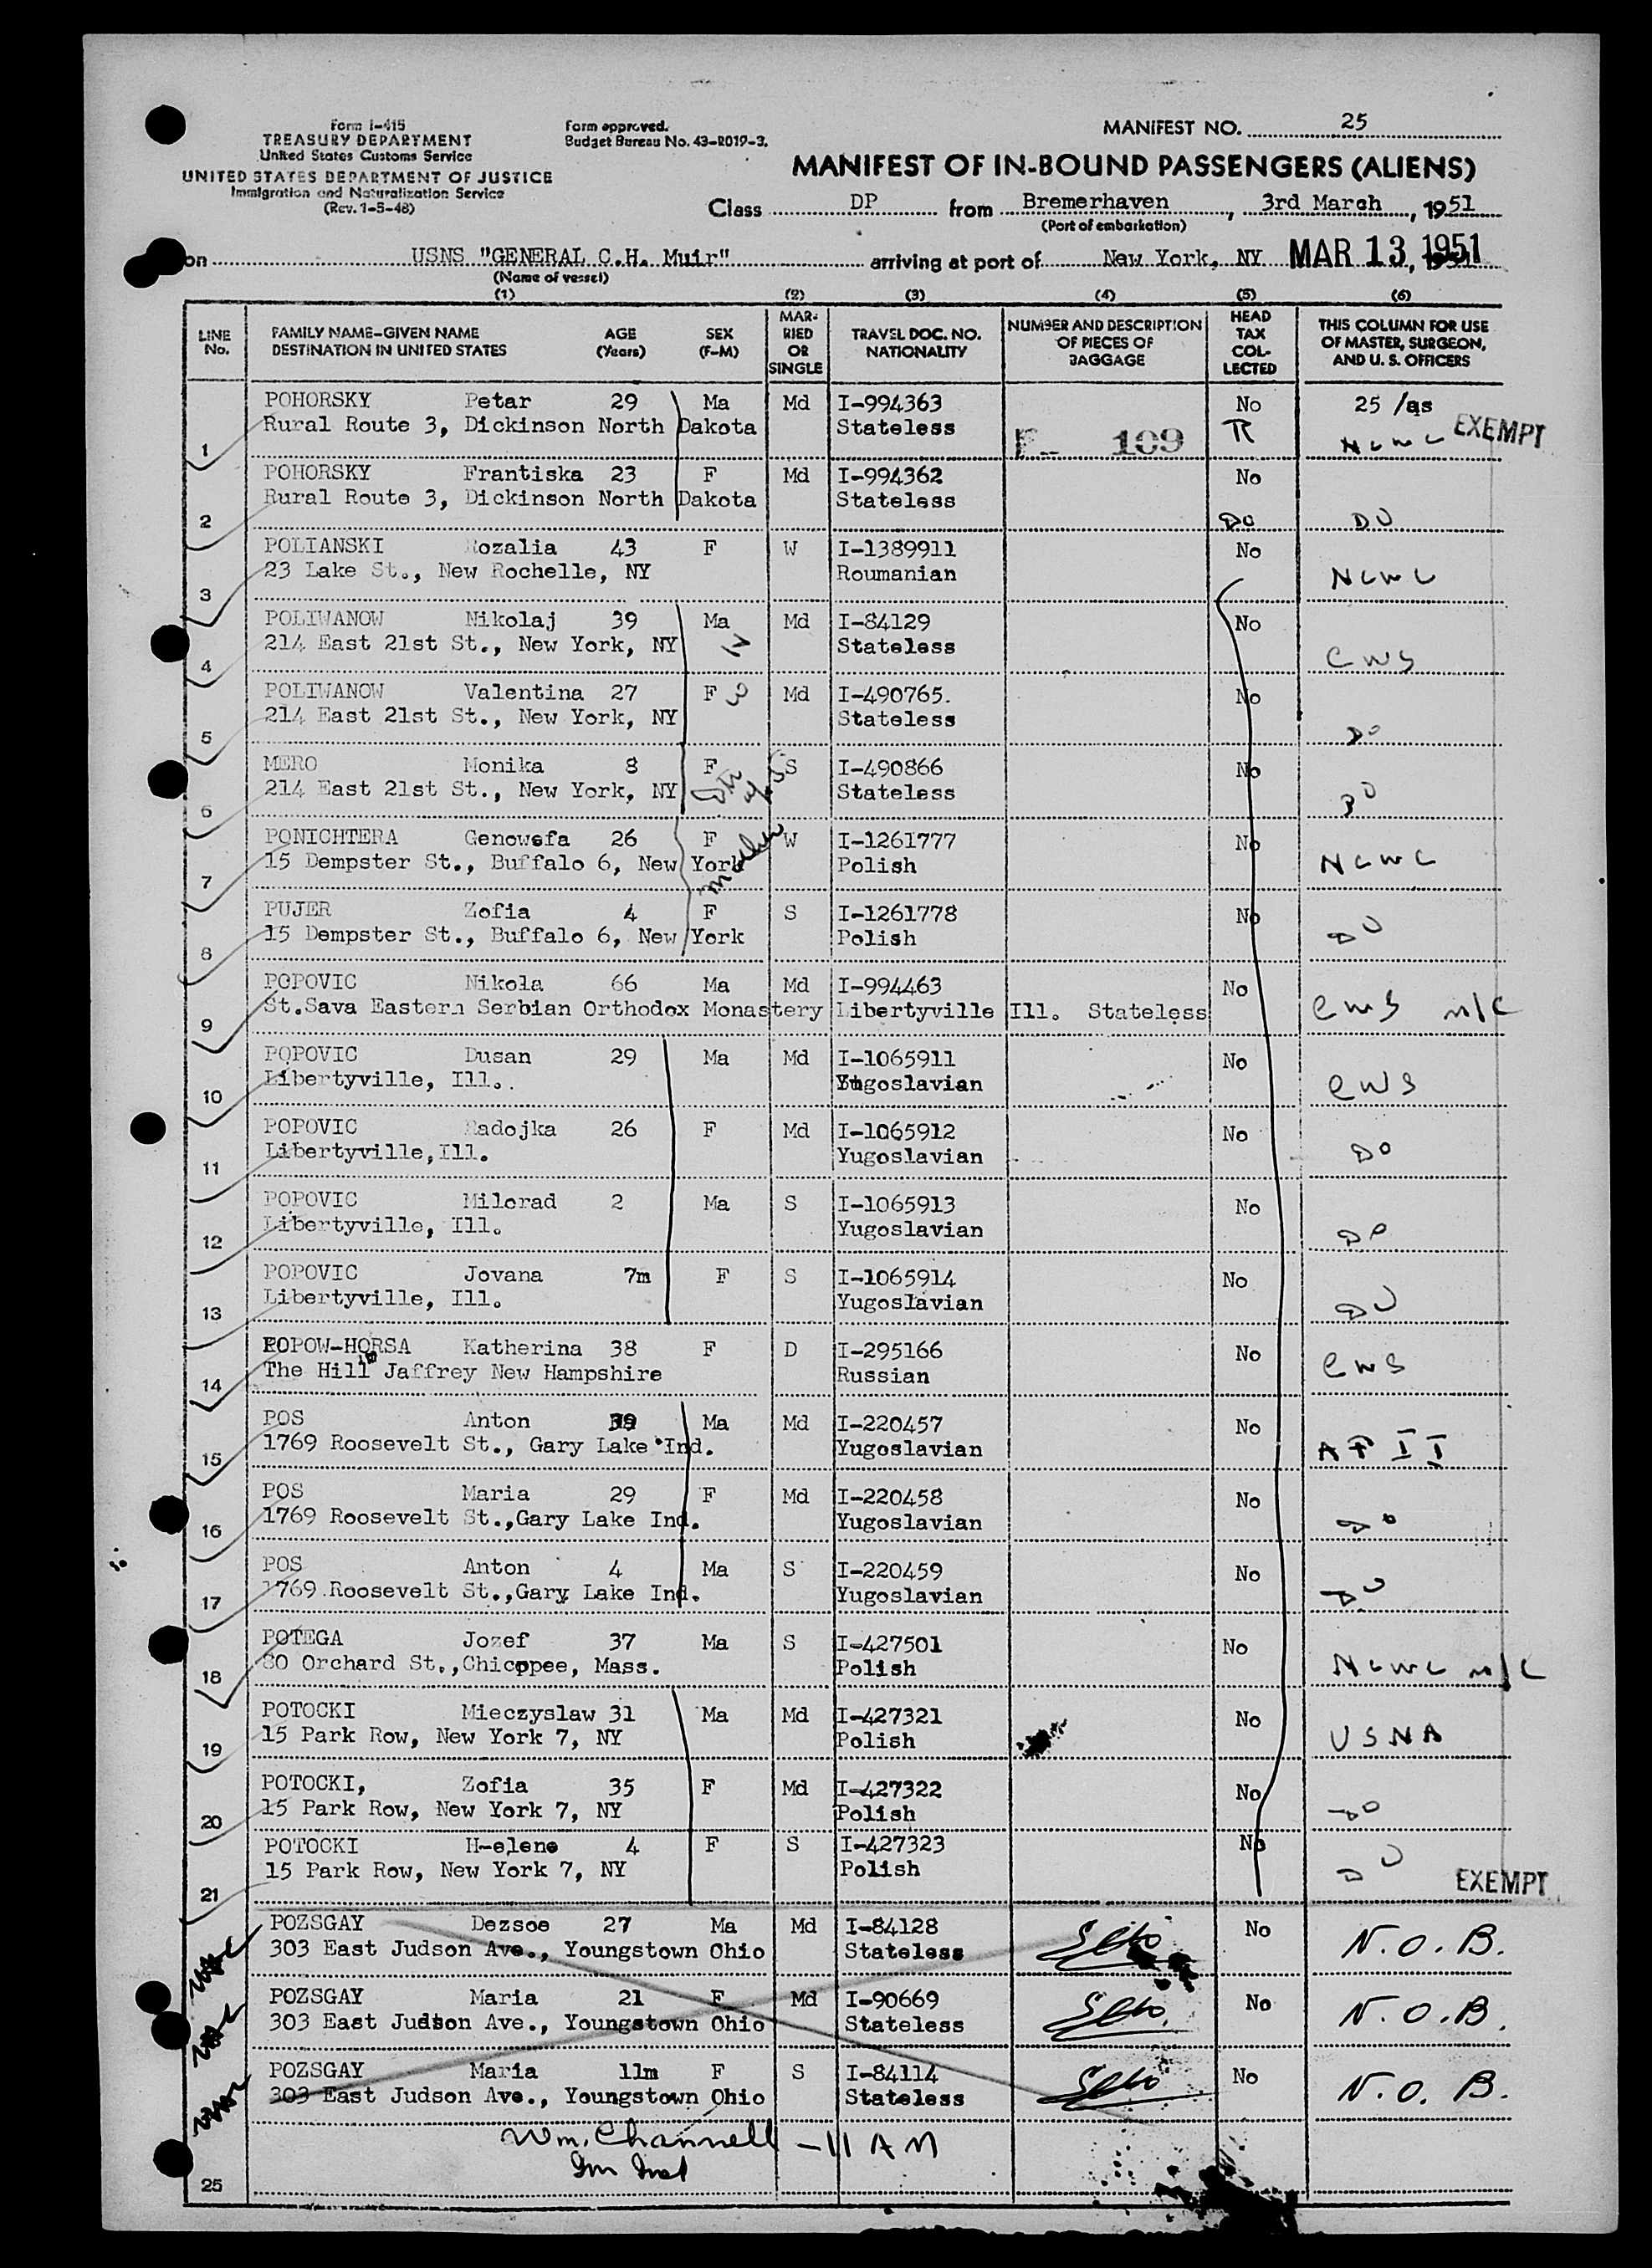 Form I-415
TREASURY DEPARTMENT
United States Customs Service
UNITED STATES DEPARTMENT OF JUSTICE
Immigration and Naturalization Service
(Rev. 1-5-48)
Form approved.
Budget Bureau No. 43-R019-3.
MANIFEST NO. 25
MANIFEST OF IN-BOUND PASSENGERS (ALIENS)
Class DP from Bremerhaven, 3rd March, 1951
(Port of embarkation)
on USNS "GENERAL C.H. Muir" arriving at port of New York, NY MAR 13, 1951
(Name of vessel)
(1) (2) (3) (4) (5) (6)
LINE No. FAMILY NAME-GIVEN NAME DESTINATION IN UNITED STATES AGE (Years) SEX (F-M) MARRIED OR SINGLE TRAVEL DOC. NO. NATIONALITY NUMBER AND DESCRIPTION OF PIECES OF BAGGAGE HEAD TAX COLLECTED THIS COLUMN FOR USE OF MASTER, SURGEON, AND U. S. OFFICERS
POHORSKY Petar 29 Ma Md I-994363 No 25 /as
1 Rural Route 3, Dickinson North Dakota Stateless 109 NCWC EXEMPT
POHORSKY Frantiska 23 F Md I-994362 No
2 Rural Route 3, Dickinson North Dakota Stateless DO DO
POLIANSKI Rozalia 43 F W I-1389911 No
3 23 Lake St., New Rochelle, NY Roumanian NCWC
POLIWANOW Nikolaj 39 Ma Md I-84129 No
4 214 East 21st St., New York, NY Stateless CWS
POLIWANOW Valentina 27 F Md I-490765. No
5 214 East 21st St., New York, NY Stateless DO
MERO Monika 8 F S I-490866 No
6 214 East 21st St., New York, NY Stateless DO
PONICHTERA Genowefa 26 F W I-1261777 No
7 15 Dempster St., Buffalo 6, New York Polish NCWC
mother
PUJER Zofia 4 F S I-1261778 No
8 15 Dempster St., Buffalo 6, New York Polish DO
POPOVIC Nikola 66 Ma Md I-994463 No
9 St.Sava Eastern Serbian Orthodox Monastery Libertyville Ill. Stateless CWS n/c
POPOVIC Dusan 29 Ma Md I-1065911 No
10 Libertyville, Ill. Yugoslavian CWS
POPOVIC Radojka 26 F Md I-1065912 No
11 Libertyville,Ill. Yugoslavian DO
POPOVIC Milorad 2 Ma S I-1065913 No
12 Libertyville, Ill. Yugoslavian DO
POPOVIC Jovana 7m F S I-1065914 No
13 Libertyville, Ill. Yugoslavian DO
POPOW-HORSA Katherina 38 F D I-295166 No
14 The Hill in Jaffrey New Hampshire Russian CWS
POS Anton 39 Ma Md I-220457 No
15 1769 Roosevelt St., Gary Lake Ind. Yugoslavian
POS Maria 29 F Md I-220458 No
16 1769 Roosevelt St.,Gary Lake Ind. Yugoslavian DO
POS Anton 4 Ma S I-220459 No
17 1769 Roosevelt St.,Gary Lake Ind. Yugoslavian DO
POTEGA Jozef 37 Ma S I-427501 No
18 80 Orchard St.,Chicopee, Mass. Polish NCWC n/c
POTOCKI Mieczyslaw 31 Ma Md I-427321 No
19 15 Park Row, New York 7, NY Polish USNA
POTOCKI, Zofia 35 F Md I-427322 No
20 15 Park Row, New York 7, NY Polish DO
POTOCKI H-elene 4 F S I-427323 No
15 Park Row, New York 7, NY Polish DO
21 EXEMPT
POZSGAY Dezsoe 27 Ma Md I-84128 No N.O.B.
303 East Judson Ave., Youngstown Ohio Stateless
POZSGAY Maria 21 F Md I-90669 No N.O.B.
303 East Judson Ave., Youngstown Ohio Stateless
POZSGAY Maria 11m F S I-84114 No N.O.B.
303 East Judson Ave., Youngstown Ohio Stateless
Wm. Channell - 11 AM
Im Inst
25